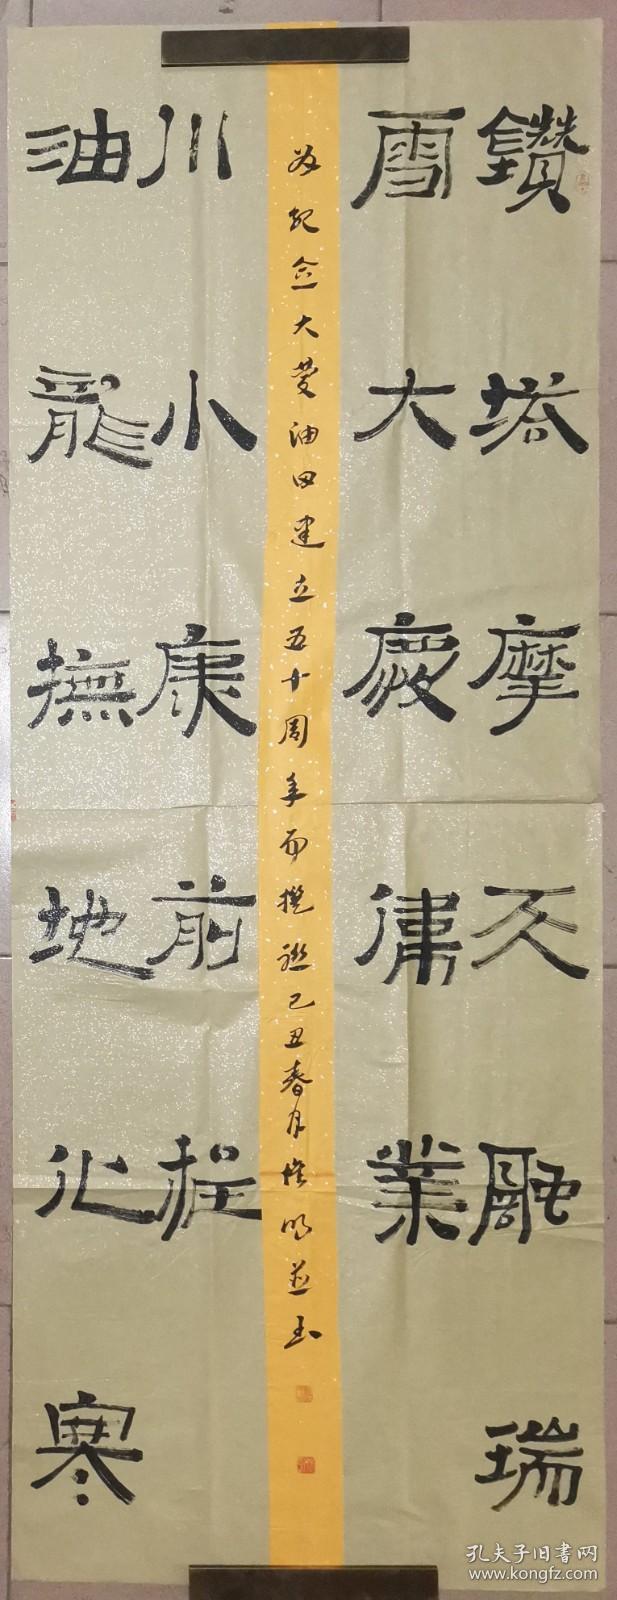 鑽塔摩天融瑞
雪大慶偉業
油龍撫地化寒
川小康前程
为紀念大慶油田建立五十周年而撰联己丑春月明並书
孔夫子旧书网
www.kongfz.com